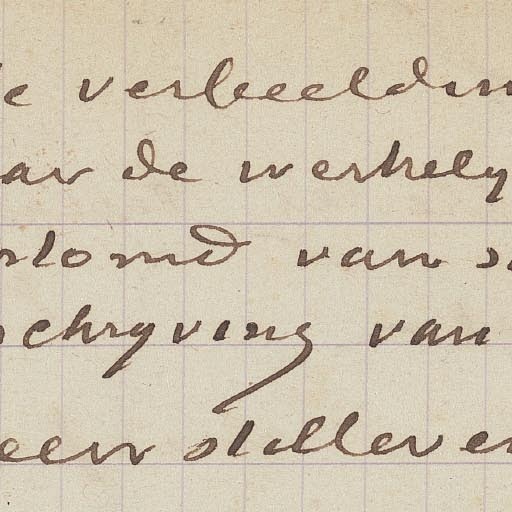 de verbeeldin
aar de werkely
stomd van s
schryving van
een stilleven